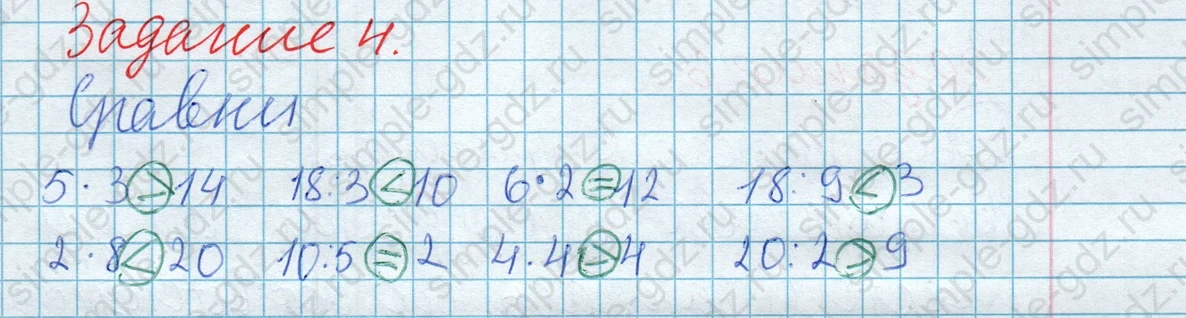 Задание 4.
Сравни
5 · 3 > 14 18:3 < 10 6 · 2 = 12 18:9 < 3
2 · 8 < 20 10:5 = 2 4 · 4 > 4 20:2 > 9
simple-gdz.ru